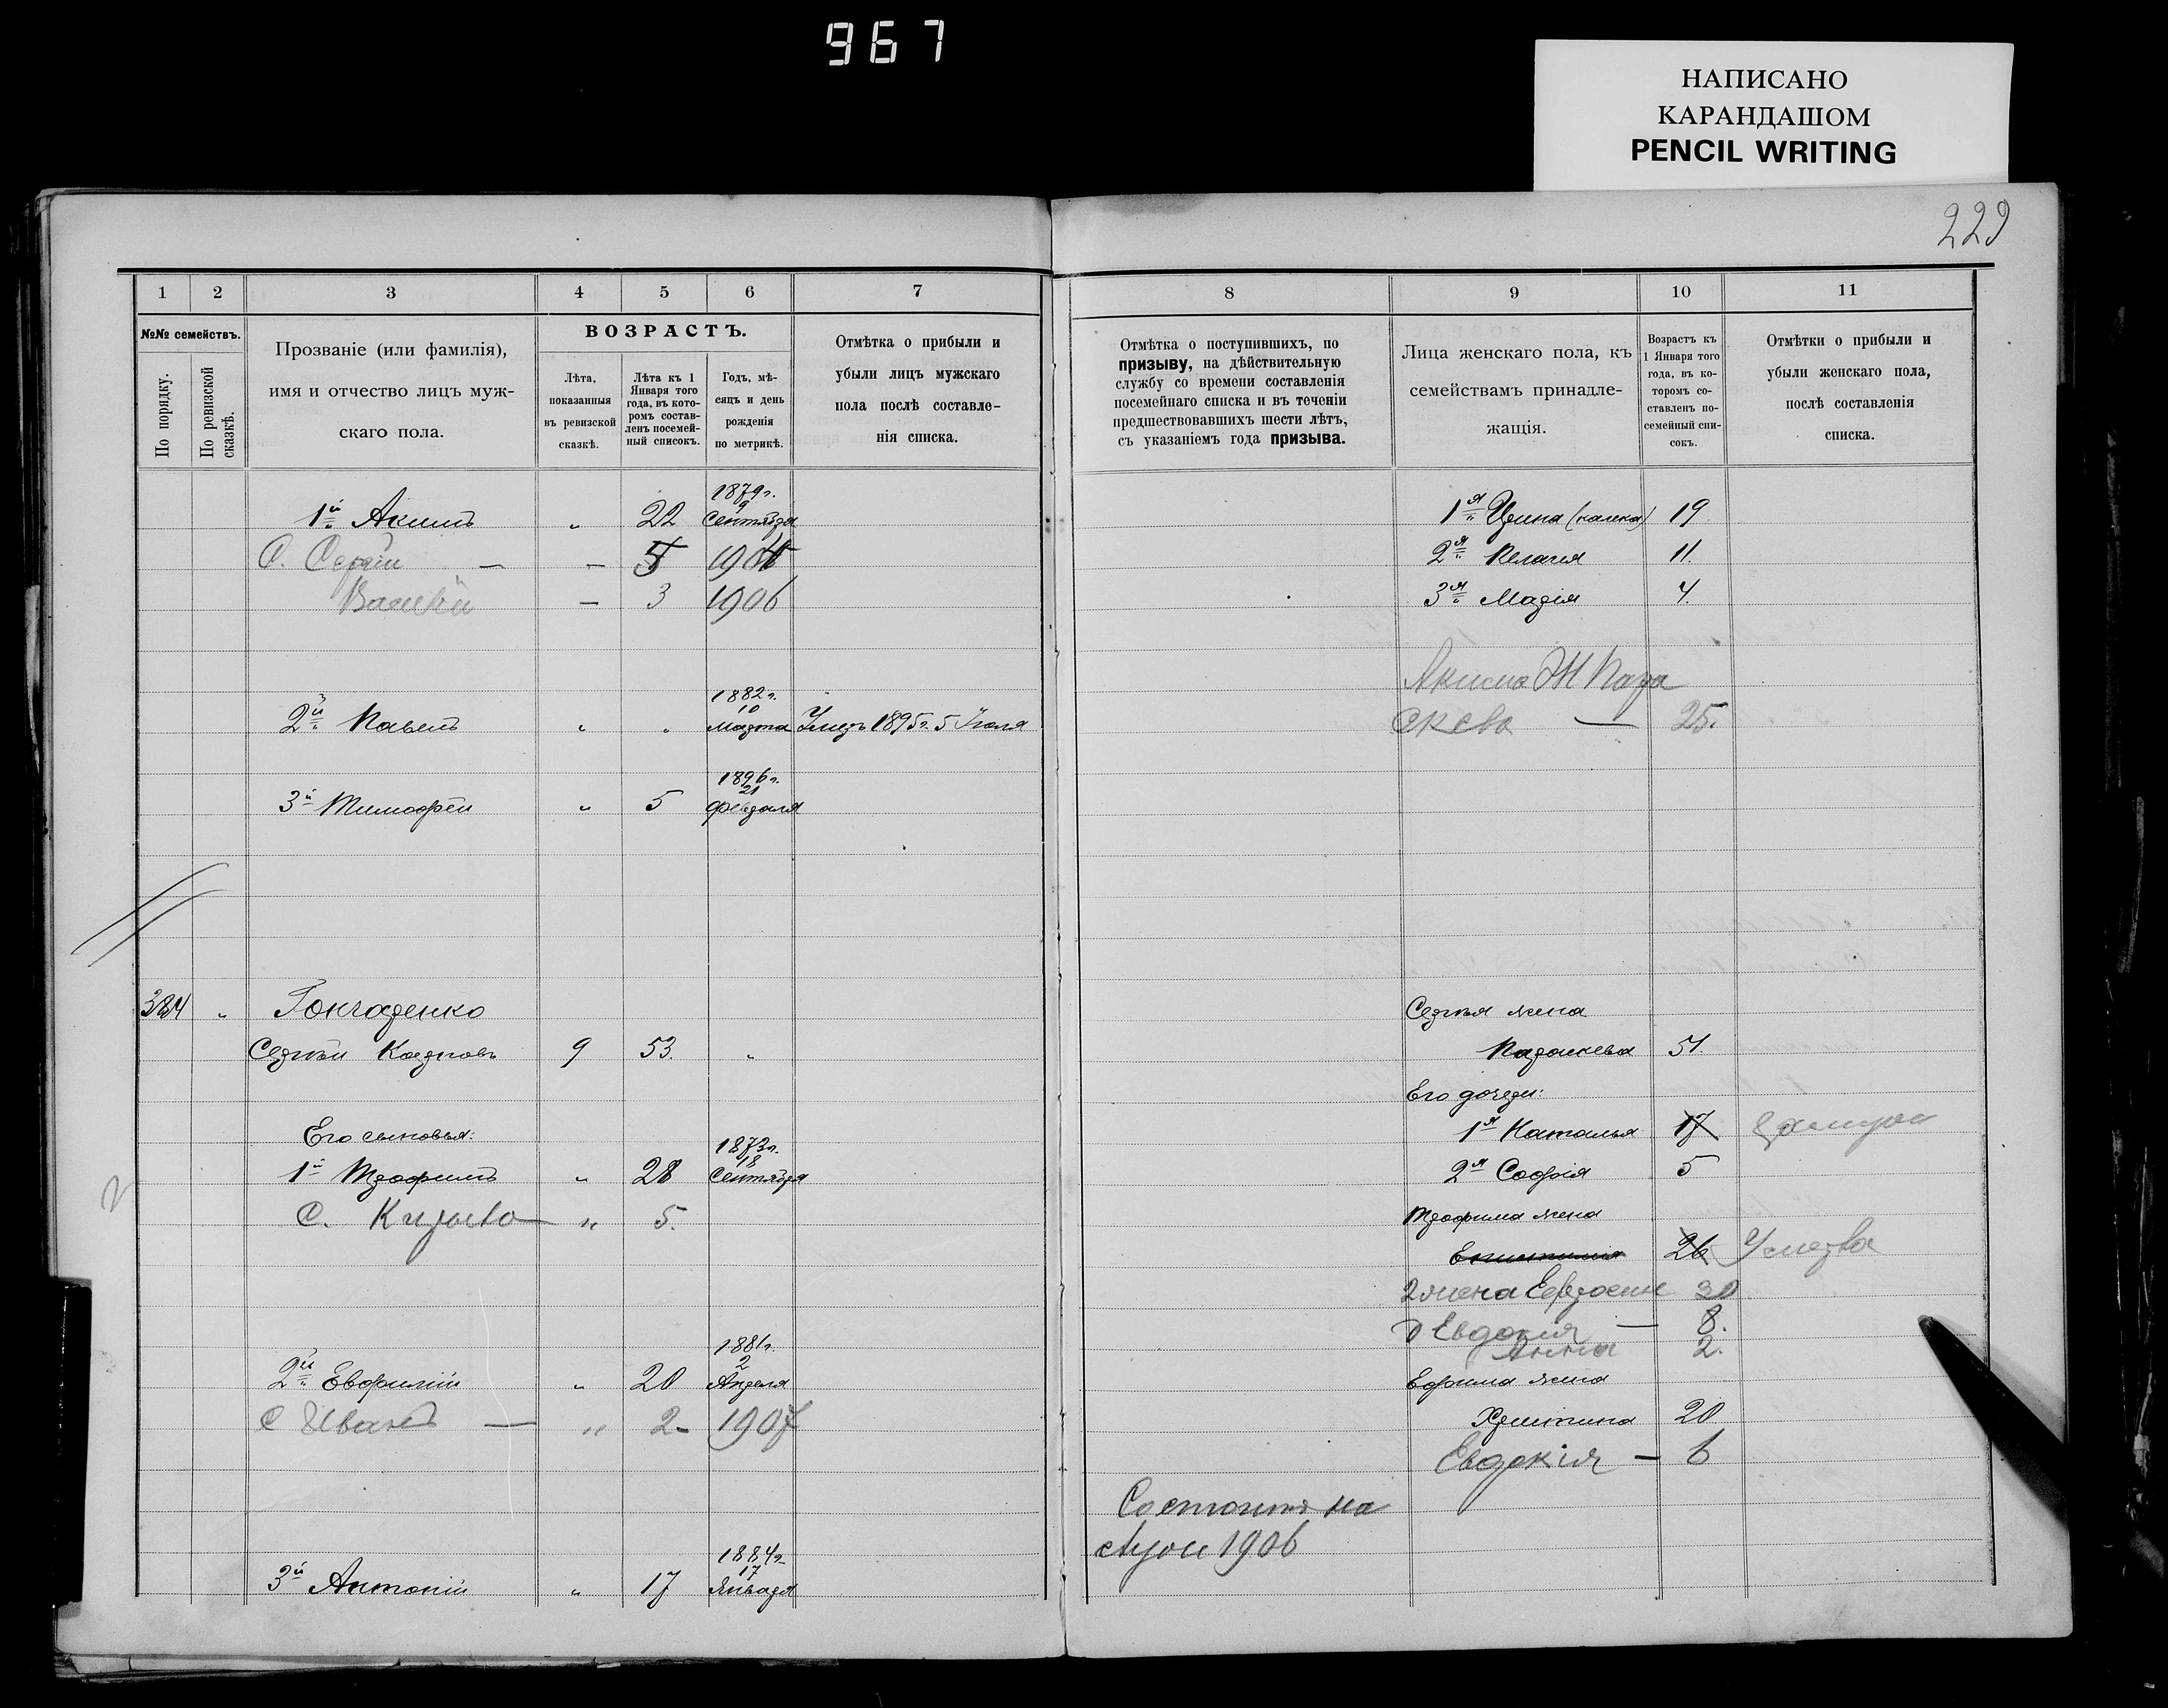 967
НАПИСАНО
КАРАНДАШОМ
PENCIL WRITING
229
1 2 3 4 5 6 7
№№ семействъ.
По порядку.
По ревизской сказкѣ.
Прозваніе (или фамилія),
имя и отчество лицъ муж-
скаго пола.
ВОЗРАСТЪ.
Лѣта,
показанныя
въ ревизской
сказкѣ.
Лѣта къ 1
Января того
года, въ кото-
ромъ состав-
ленъ посемей-
ный списокъ.
Годъ, мѣ-
сяцъ и день
рожденія
по метрикѣ.
Отмѣтка о прибыли и
убыли лицъ мужскаго
пола послѣ составле-
нія списка.
1879 г.
9
1й Акимъ " 22 Сентября
С. Сергѣй — — 5
Василій — 3 1906
1882 г.
10
2й Павелъ " " Марта Умеръ 1895 г. 5 Іюля
1896 г.
21
3й Тимофей " 5 Февраля
384 " Гончаренко
Сергѣй Карповъ 9 53. "
Его сыновья:
1873 г.
18
1й Трофимъ " 28 Сентября
С. — " 5.
1881 г.
2
2й Евфимій " 20 Апреля
С Иванъ — " 2 - 1907
1884 г.
17
3й Антоній " 17 Января
8 9 10 11
Отмѣтка о поступившихъ, по
призыву, на дѣйствительную
службу со времени составленія
посемейнаго списка и въ теченіи
предшествовавшихъ шести лѣтъ,
съ указаніемъ года призыва.
Лица женскаго пола, къ
семействамъ принадле-
жащія.
Возрастъ къ
1 Января того
года, въ ко-
торомъ со-
ставленъ по-
семейный спи-
сокъ.
Отмѣтки о прибыли и
убыли женскаго пола,
послѣ составленія
списка.
1я 19
2я Пелагія 11.
3я Марія 4.
Акима Ж Пара
скева — 25.
Сергѣя жена
Параскева 51.
Его дочери:
1я Наталья 17 Замужем
2я Софія 5
Трофима жена
26 Умерла
2 жена Ефросин 30
д Евдокія — 8.
Анна 2.
Ефима жена
Христина 20
Евдокія — 6
Состоитъ на
служ 1906